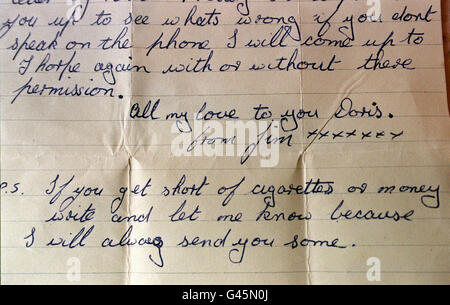 you up to see whats wrong if you dont
speak on the phone I will come up to
I horpe again with or without there
permission.
All my love to you Doris.
from Jim xxxxxxx
P.S. If you get short of cigarettes or money
write and let me know because
I will always send you some.
alamy stock photo
G45N0J
www.alamy.com